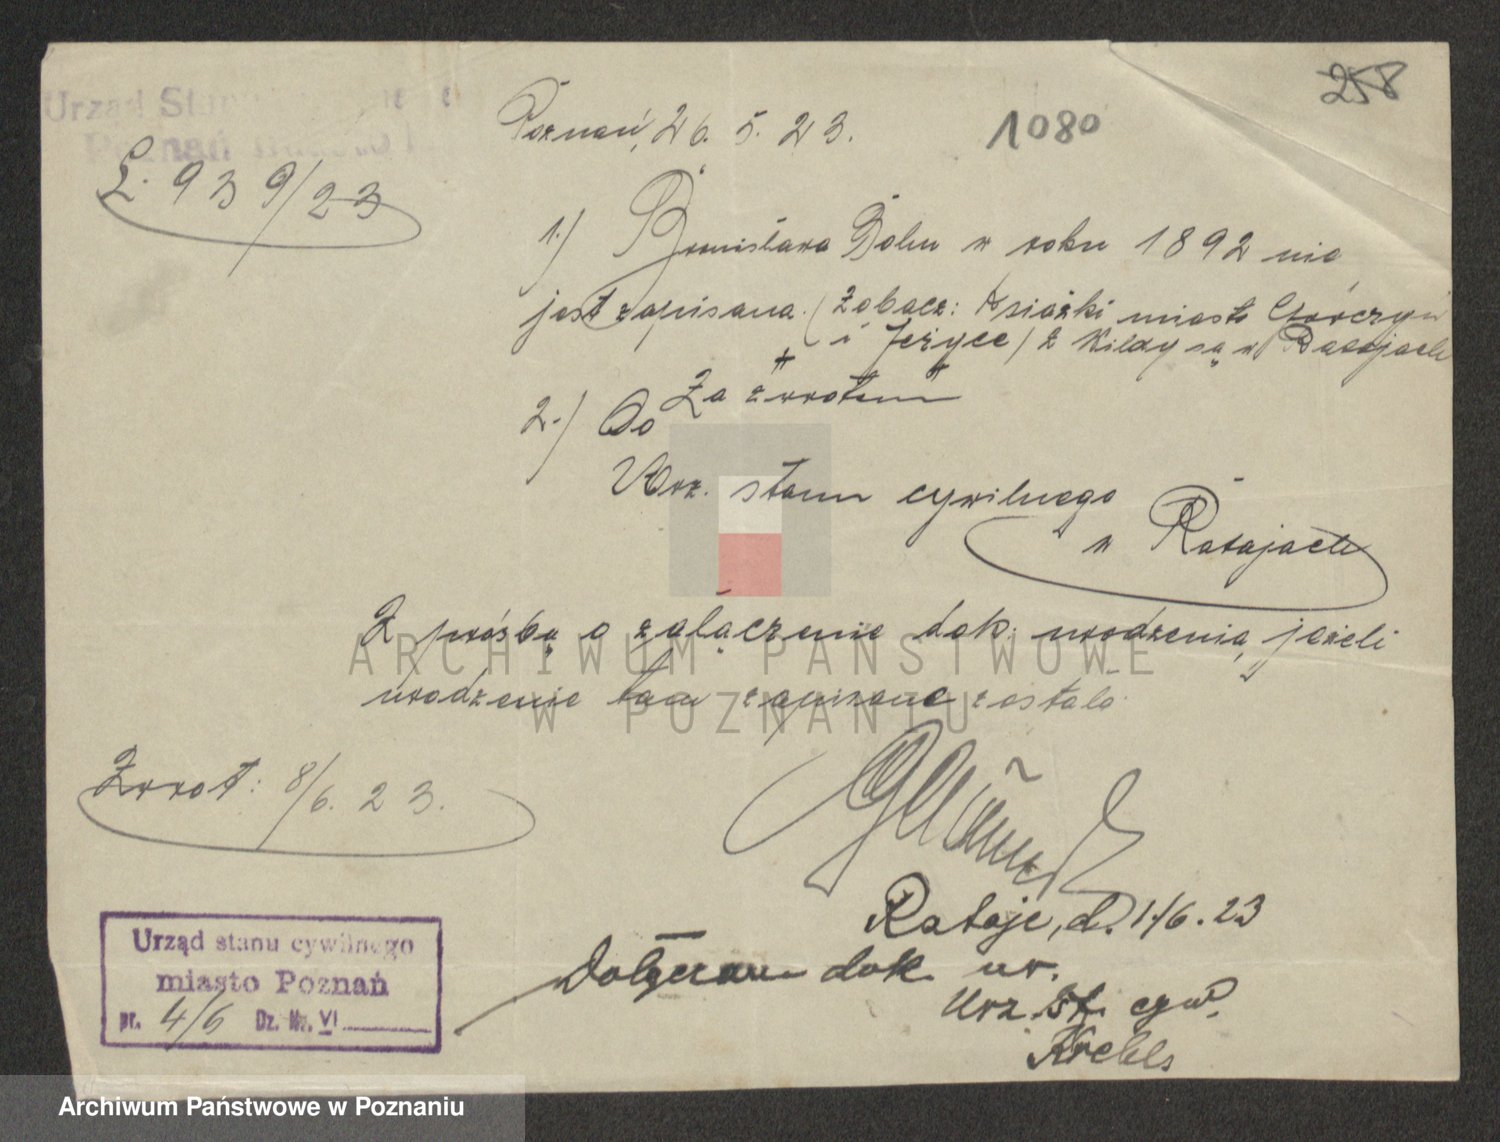 258
Urząd Stanu
Poznań miasto
Poznań, 26. 5. 23.
1080
L. 939/23
1.) Bronisława Bohn w roku 1892 nie
jest zapisana. (Zobacz: Książki miasto Górczyn
i Jeżyce) z Wildy są w Ratajach
Za zwrotem
2.) Do
Urz. stanu cywilnego
w Ratajach
Z prośbą o załączenie dok. urodzenia, jeżeli
urodzenie tam zapisane zostało.
Zwrot: 8/6. 23.
Rataje, d. 1/6. 23
Dołączam dok. ur.
Urz. st. cyw.
Krebls
Urząd stanu cywilnego
miasto Poznań
pr. 4/6 Dz. Nr. VI
ARCHIWUM PAŃSTWOWE
W POZNANIU
Archiwum Państwowe w Poznaniu